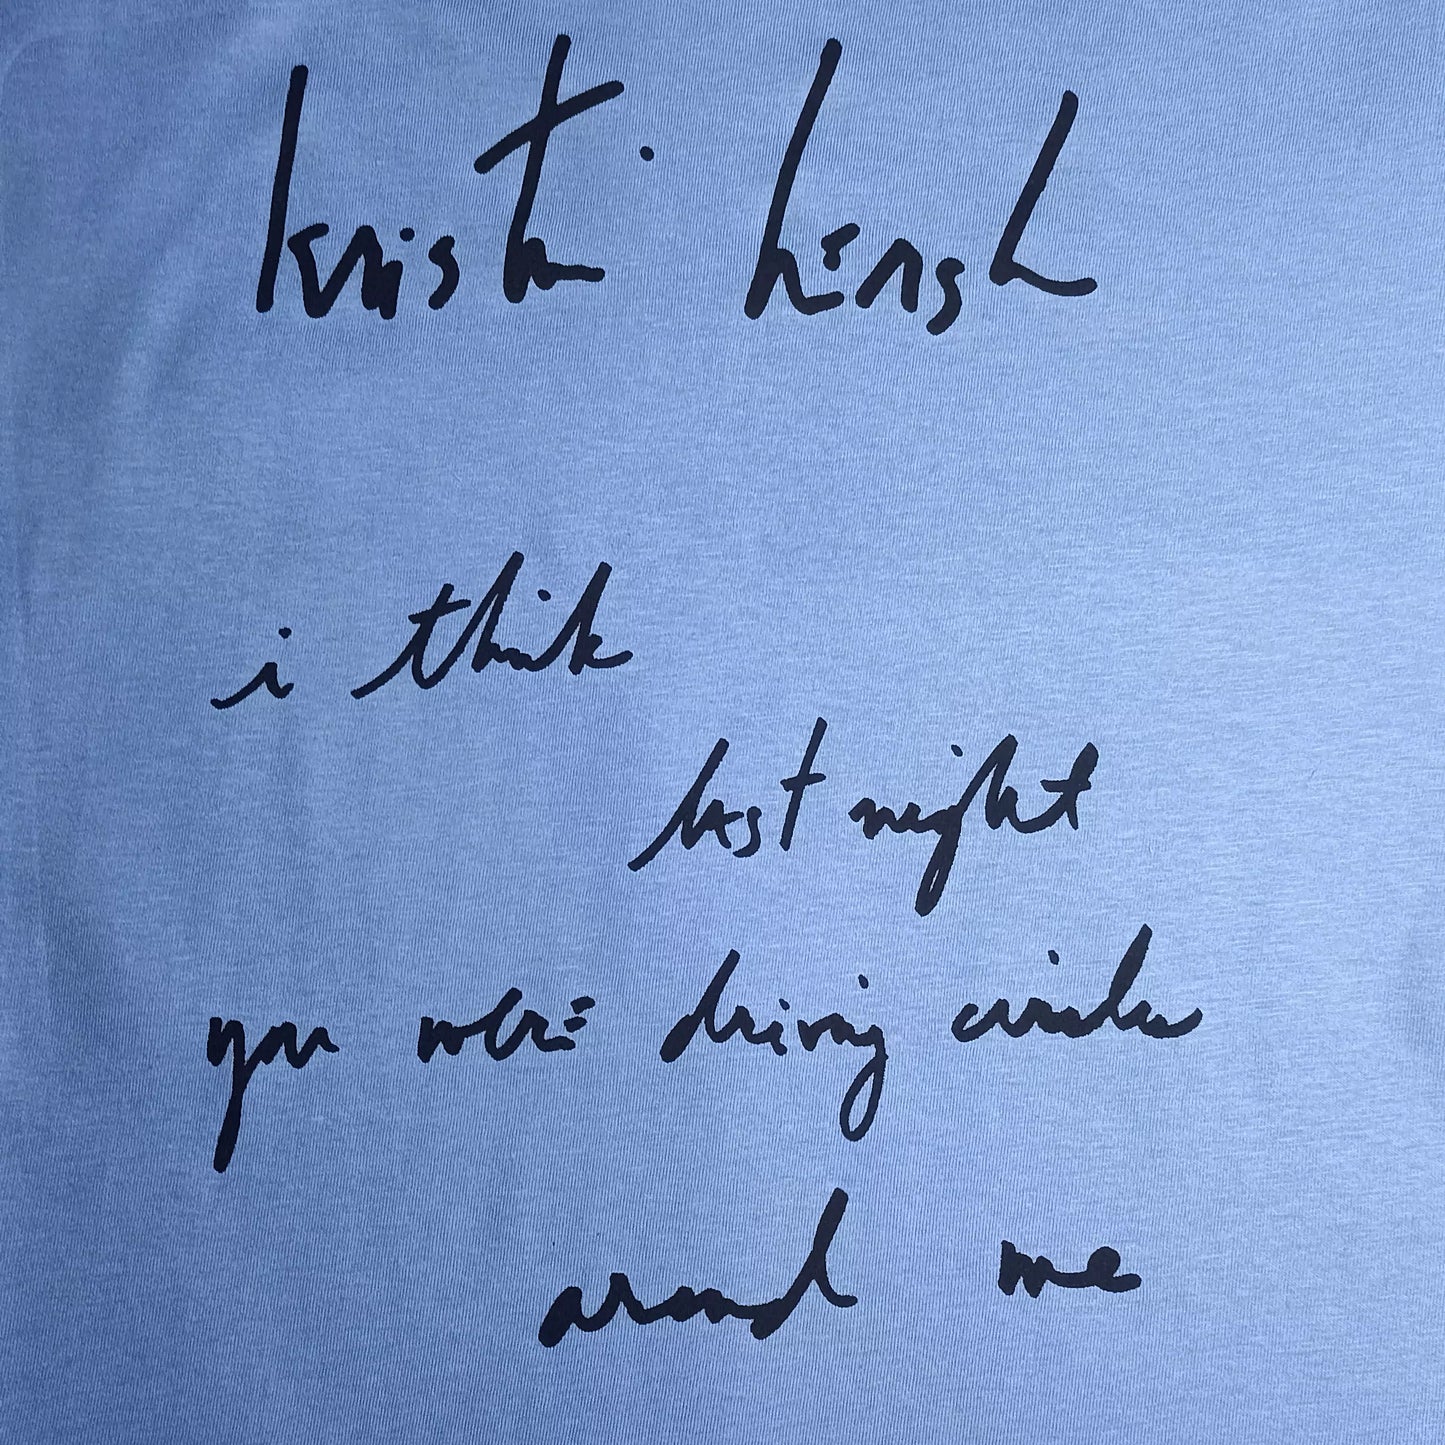 kristin hersh
i think
last night
you were driving circles
around me